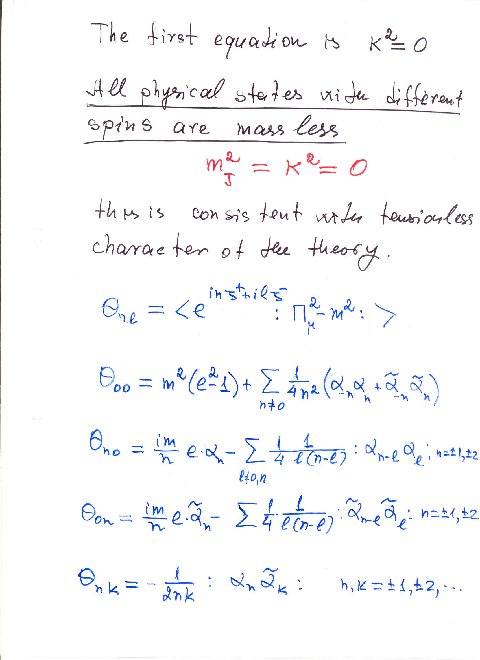 The first equation is K² = 0
All physical states with different
spins are massless
m_J² = K² = 0
this is consistent with tensionless
character of the theory.
Θ_{nl} = < e^{inζ⁺+ilζ⁻} : Π_μ² - m² : >
Θ_{00} = m²(e²-1) + Σ_{n≠0} 1/4n² (α_{-n} α_n + α̃_{-n} α̃_n)
Θ_{n0} = im/n e·α_n - Σ_{l≠0,n} 1/4 1/l(n-l) : α_{n-l} α_l : n=±1,±2
Θ_{0n} = im/n e·α̃_n - Σ 1/4 · 1/l(n-l) : α̃_{n-l} α̃_l : n=±1,±2
Θ_{nk} = - 1/2nk : α_n α̃_k : n,k = ±1,±2,...